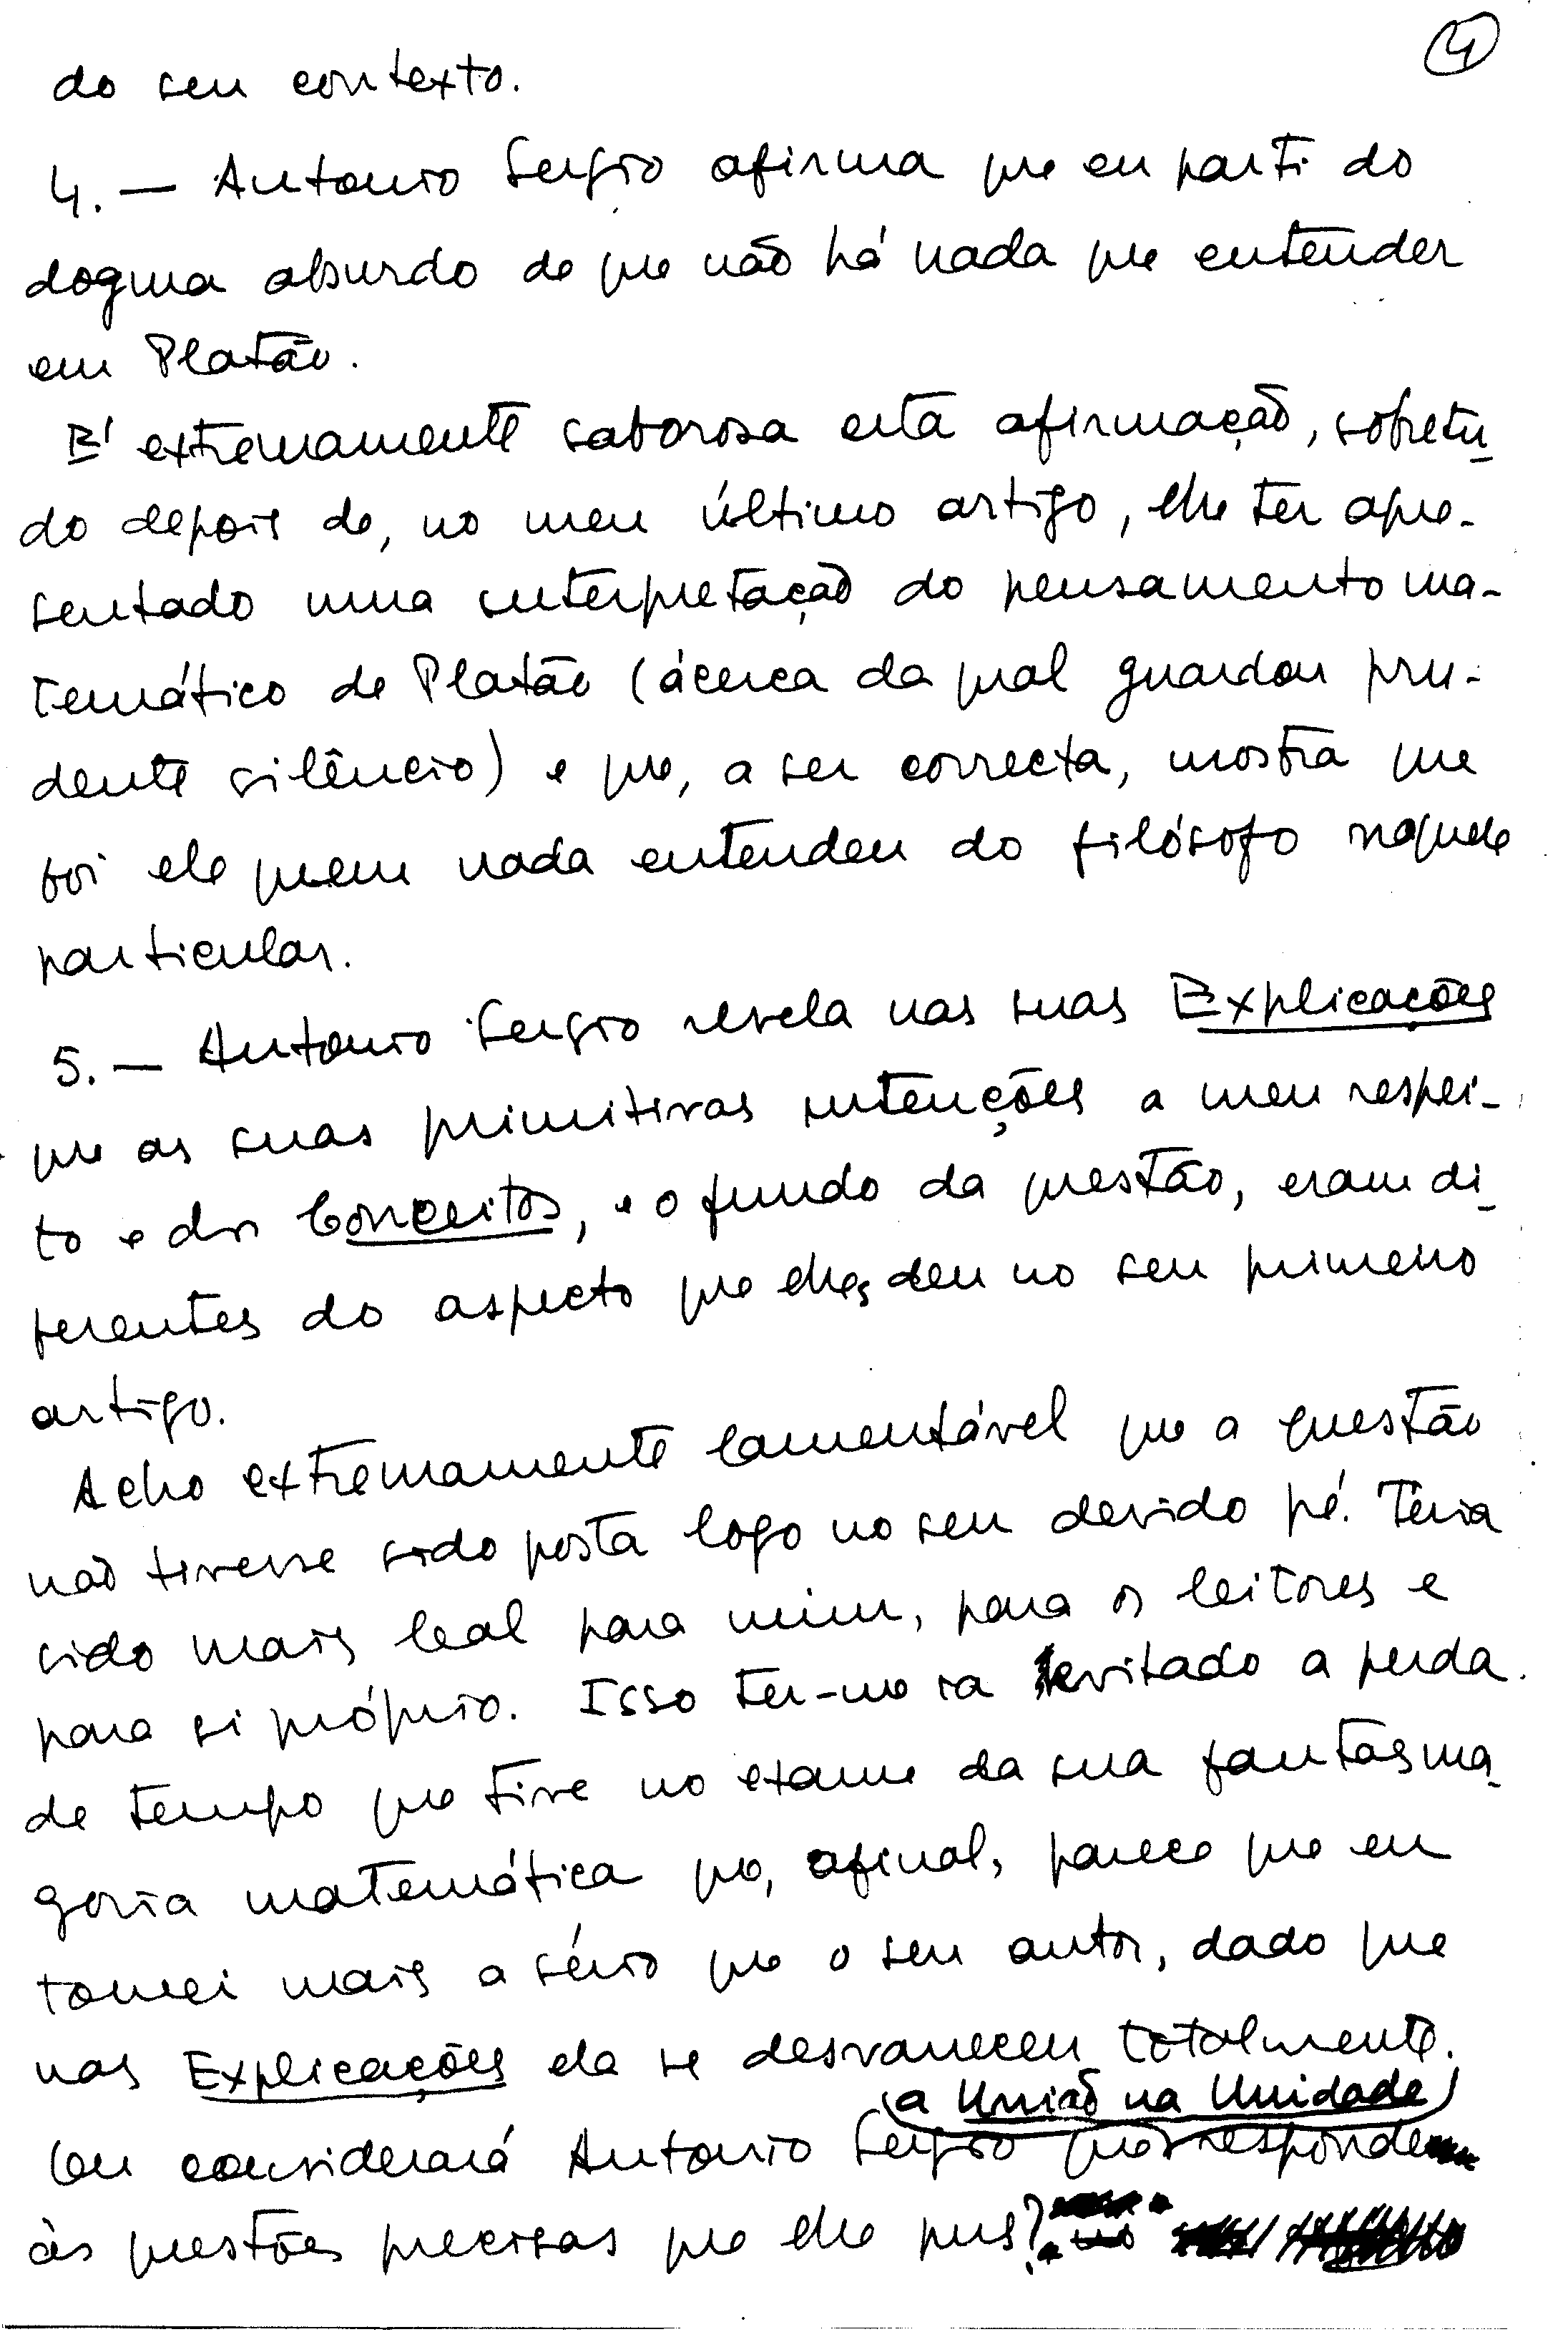 4
do seu contexto.
4. — Antonio Sergio afirma que eu parti do
dogma absurdo de que não há nada que entender
em Platão.
E' extremamente saborosa esta afirmação, sobretu-
do depois de, no meu último artigo, lhe ter apre-
sentado uma interpretação do pensamento ma-
temático de Platão (ácerca da qual guardou pru-
dente silêncio) e que, a ser correcta, mostra que
foi ele quem nada entendeu do filósofo naquele
particular.
5. — Antonio Sergio revela nas suas Explicações
que as suas primitivas intenções a meu respei-
to e dos Conceitos, e o fundo da questão, eram di-
ferentes do aspecto que lhes deu no seu primeiro
artigo.
Acho extremamente lamentável que a questão
não tivesse sido posta logo no seu devido pé. Teria
sido mais leal para mim, para os leitores e
para si próprio. Isso ter-me ia evitado a perda
de tempo que tive no exame da sua fantasma-
goria matemática que, afinal, parece que eu
tomei mais a sério que o seu autor, dado que
nas Explicações ela se desvaneceu totalmente.
(a União na Unidade)
Ou considerará Antonio Sergio que responde
às questões precisas que lhe pus?